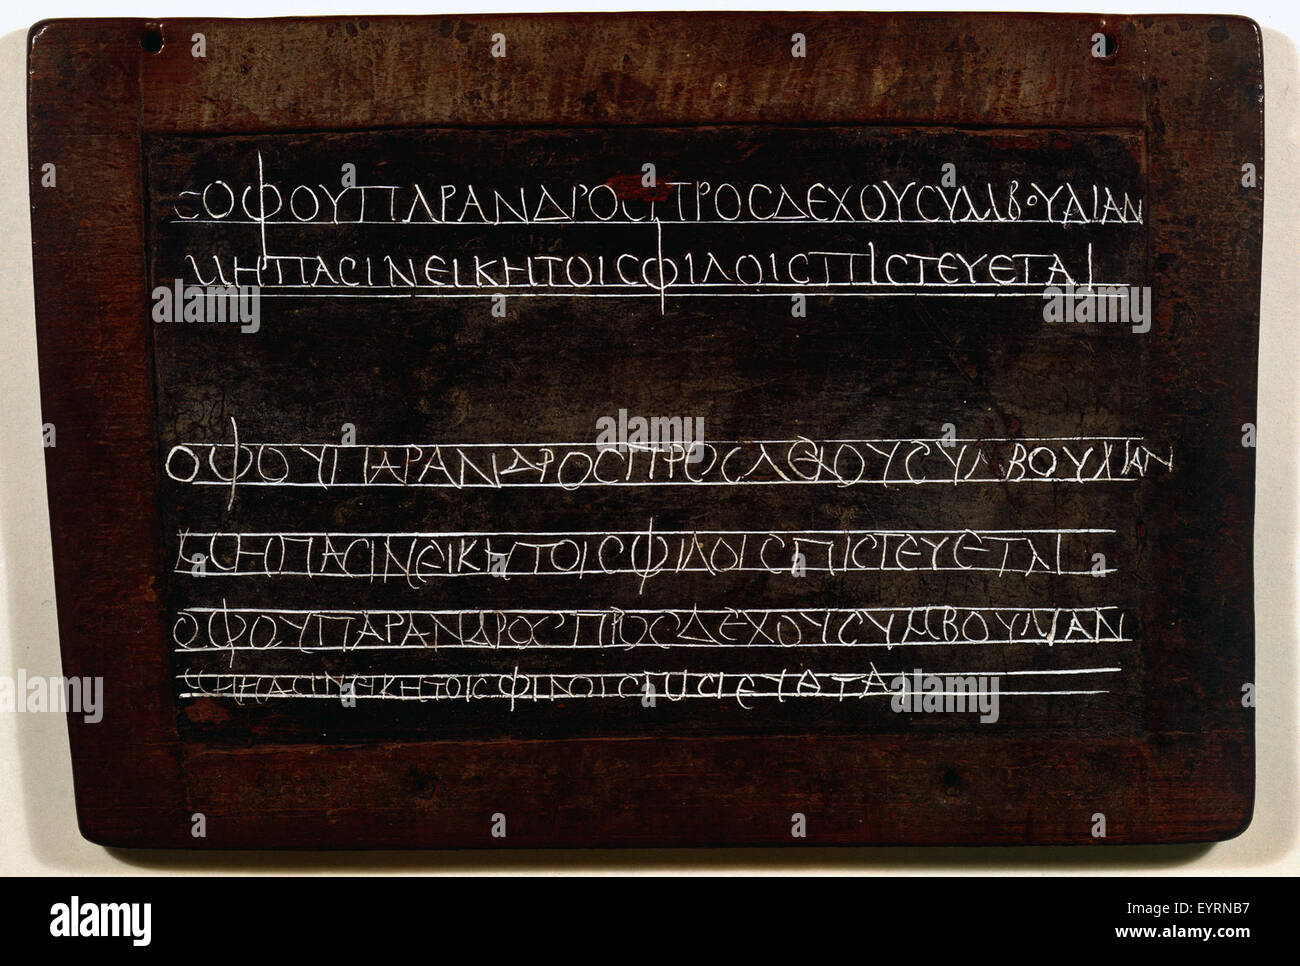 ϹΟΦΟΥΠΑΡΑΝΔΡΟϹΠΡΟϹΔΕΧΟΥϹΥΜΒΟΥΛΙΑΝ
ΜΗΠΑϹΙΝΕΙΚΗΤΟΙϹΦΙΛΟΙϹΠΙϹΤΕΥΕΤΑΙ
ΟΦΟΥΠΑΡΑΝΔΡΟϹΠΡΟϹΔΕΧΟΥϹΥΜΒΟΥΛΙΑΝ
ΜΗΠΑϹΙΝΕΙΚΗΤΟΙϹΦΙΛΟΙϹΠΙϹΤΕΥΕΤΑΙ
ΟΦΟΥΠΑΡΑΝΔΡΟϹΠΡΟϹΔΕΧΟΥϹΥΜΒΟΥΛΙΑΝ
ΜΗΠΑϹΙΝΕΙΚΗΤΟΙϹΦΙΛΟΙϹΠΙϹΤΕΥΕΤΑΙ
alamy stock photo
Image ID: EYRNB7
www.alamy.com